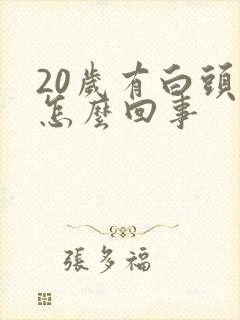 20歲有白頭
怎麼回事
張多福